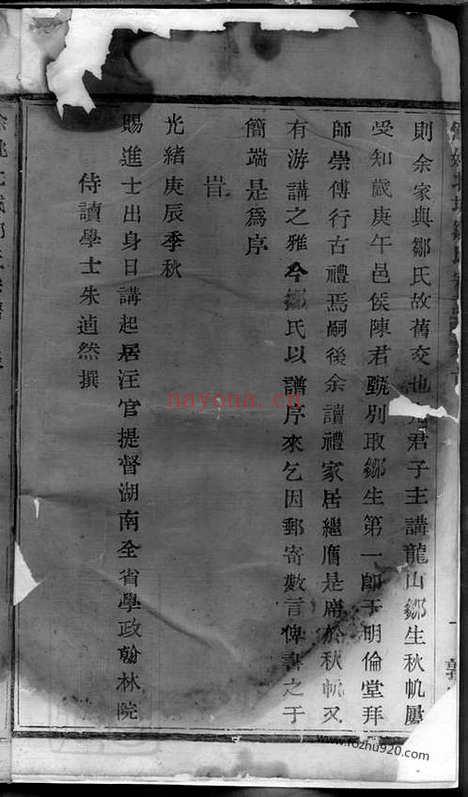 則余家與鄒氏故舊交也君子主講龍山鄒生秋帆屬
受知歲庚午邑侯陳君甄別取鄒生第一卽于明倫堂拜
師崇傳行古禮焉嗣後余讀禮家居繼膺是席於秋帆又
有游講之雅今鄒氏以譜序來乞因郵寄數言俾書之于
簡端是為序
旹
光緒庚辰季秋
賜進士出身日講起居注官提督湖南全省學政翰林院
侍讀學士朱逌然撰
nayona.cn
www.fozhu920.com